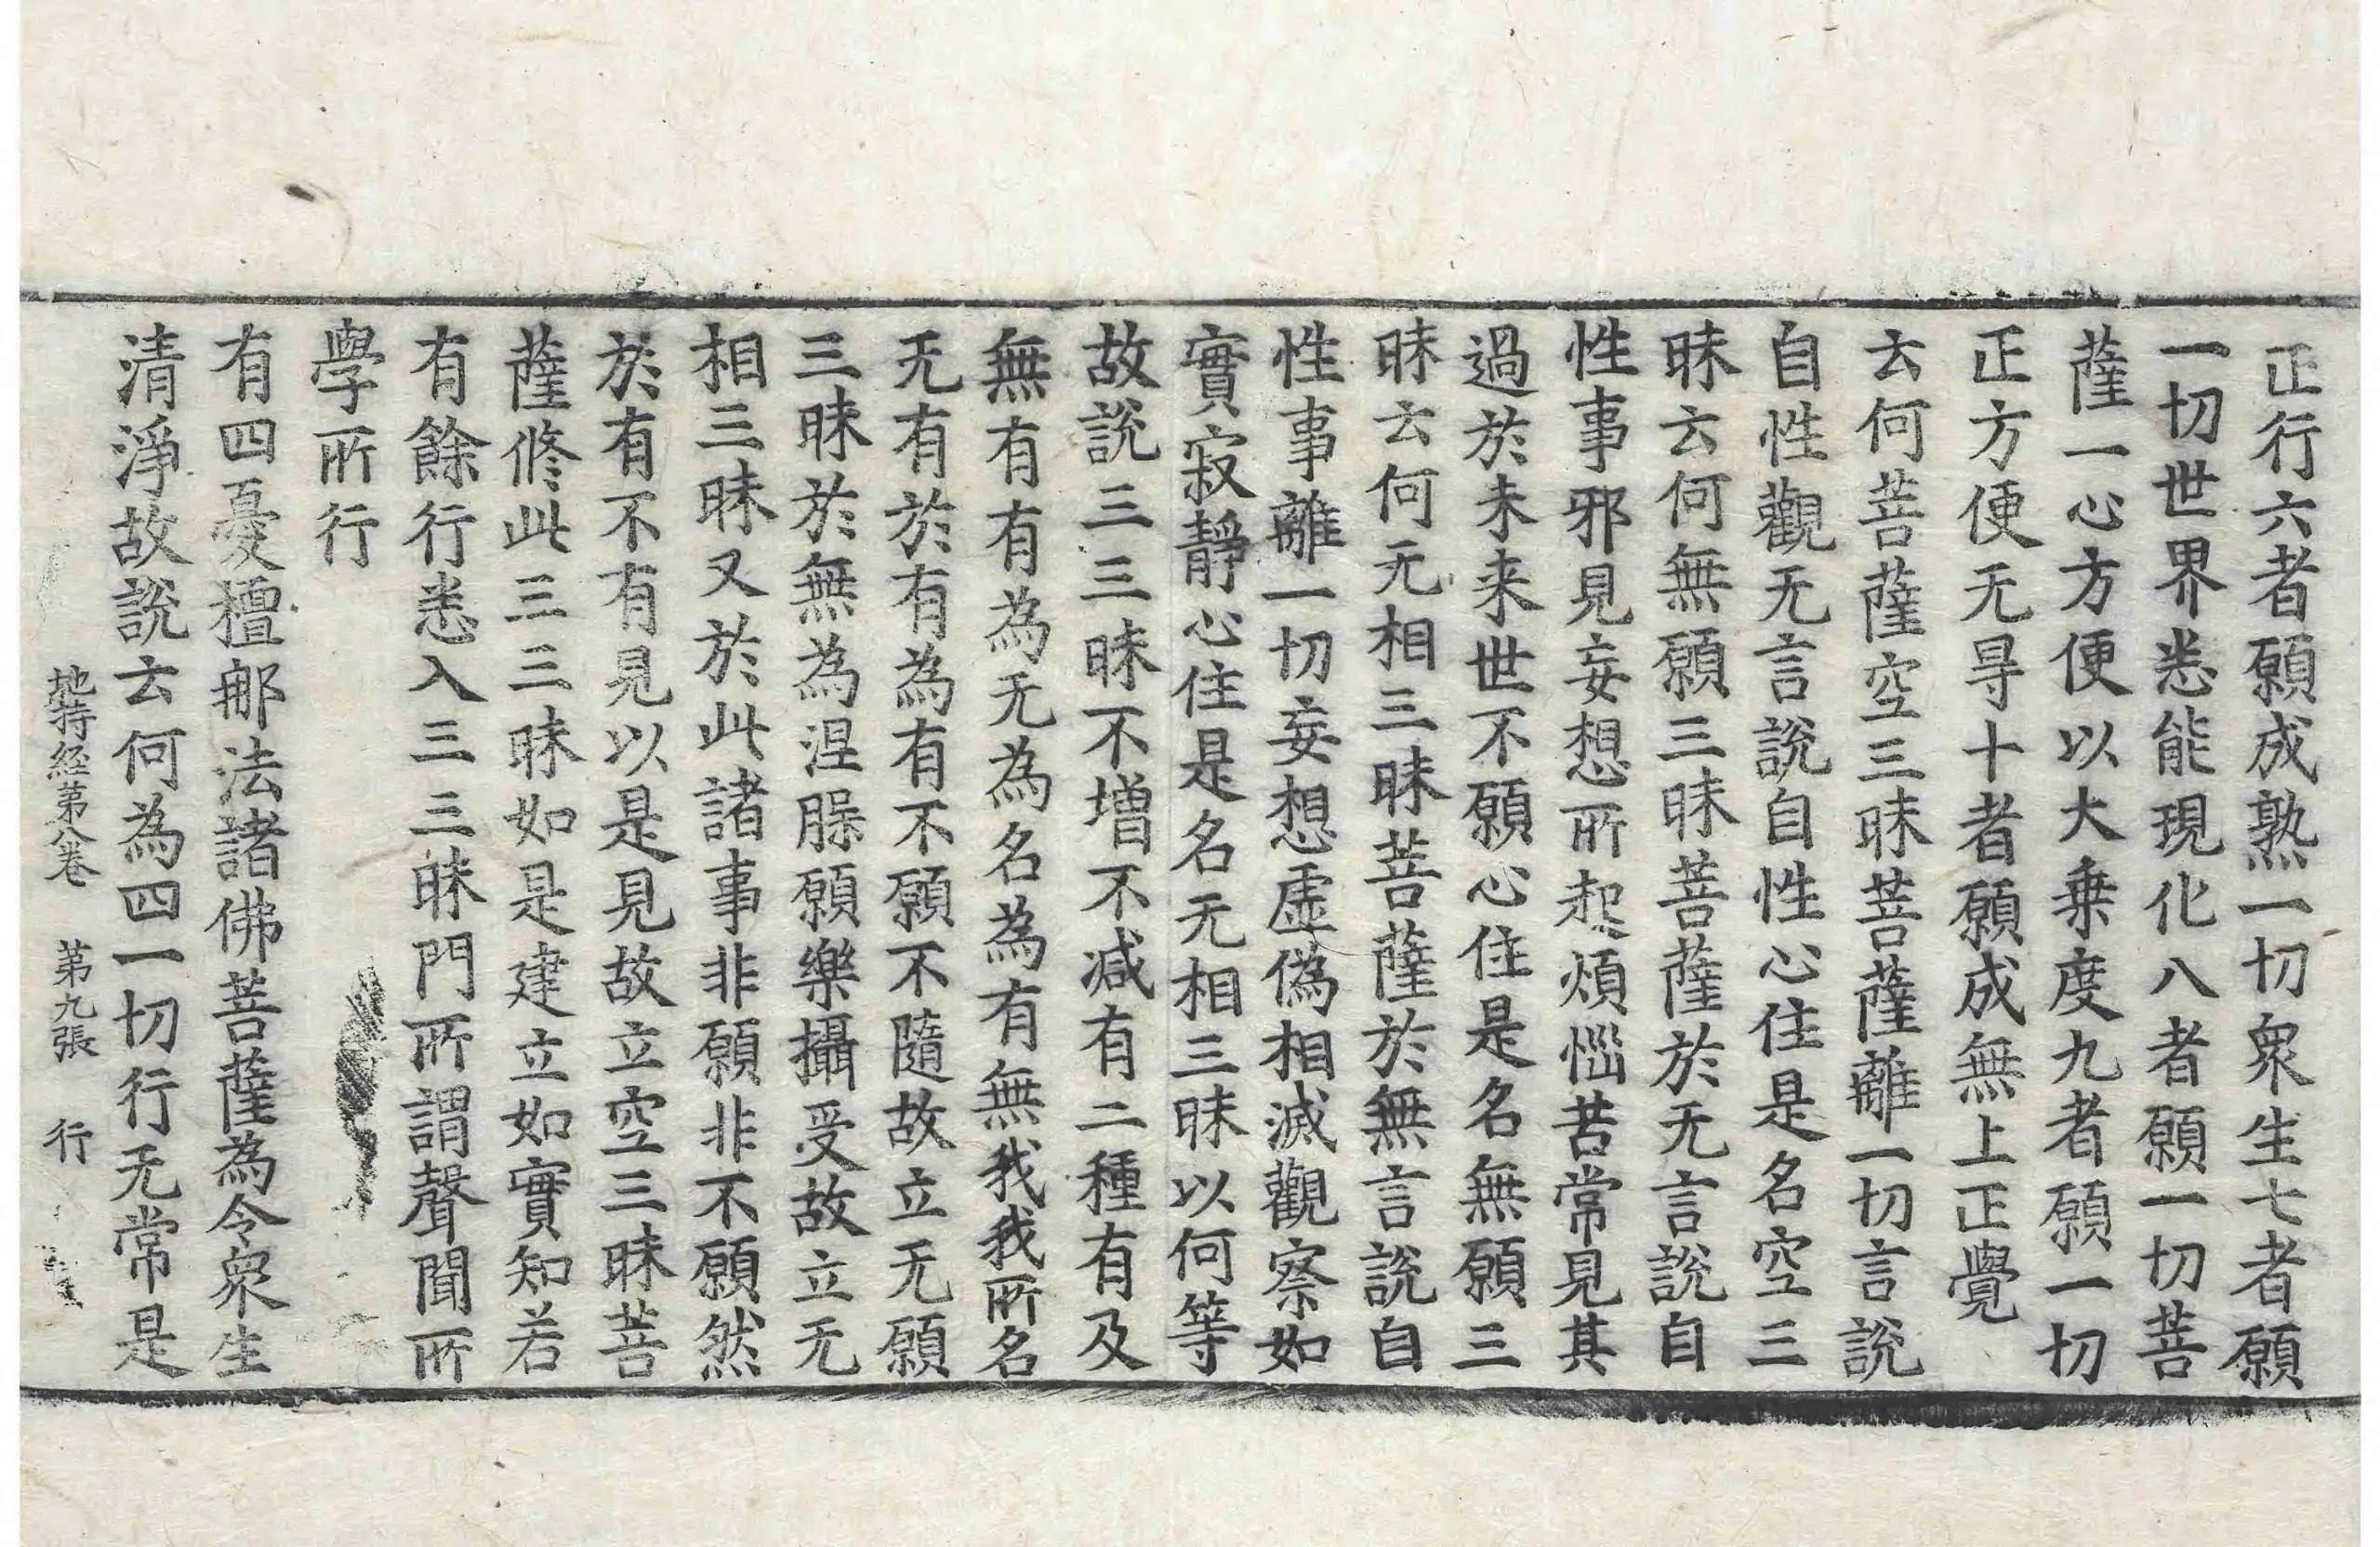 正行六者願成熟一切衆生七者願
一切世界悉能現化八者願一切菩
薩一心方便以大乗度九者願一切
正方便无㝵十者願成無上正覺
去何菩薩空三昧菩薩離一切言說
自性觀无言說自性心住是名空三
昧去何無願三昧菩薩於无言說自
性事邪見妄想所起煩惱苦常見其
過於未来世不願心住是名無願三
昧去何无相三昧菩薩於無言說自
性事離一切妄想虛偽相滅觀察如
實寂靜心住是名无相三昧以何等
故說三三昧不增不減有二種有及
無有有為无為名為有無我我所名
无有於有為有不願不隨故立无願
三昧於無為涅槃願樂攝受故立无
相三昧又於此諸事非願非不願然
於有不有見以是見故立空三昧菩
薩修此三三昧如是建立如實知若
有餘行悉入三三昧門所謂聲聞所
學所行
有四憂檀那法諸佛菩薩為令衆生
清淨故說去何為四一切行无常是
地持経第八卷　第九張　行